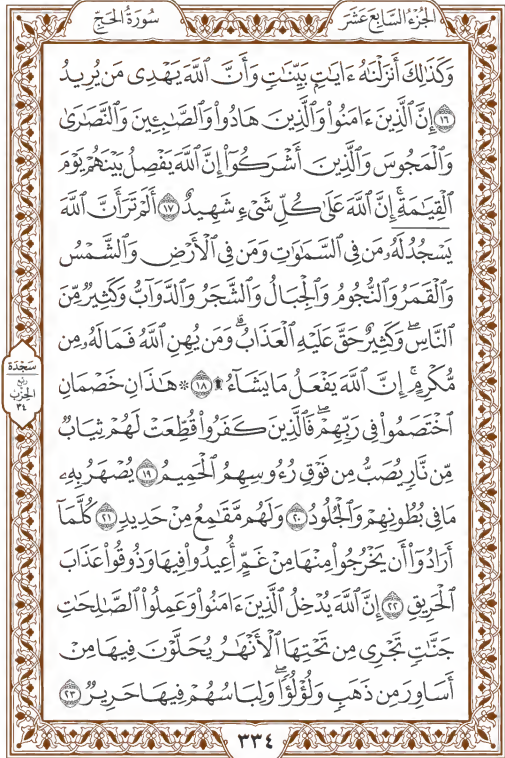 الجُزْءُ السَّابِعَ عَشَرَ
سُورَةُ الحَجِّ
وَكَذَٰلِكَ أَنزَلْنَٰهُ ءَايَٰتِۭ بَيِّنَٰتٖ وَأَنَّ ٱللَّهَ يَهْدِي مَن يُرِيدُ
١٦ إِنَّ ٱلَّذِينَ ءَامَنُواْ وَٱلَّذِينَ هَادُواْ وَٱلصَّٰبِـِٔينَ وَٱلنَّصَٰرَىٰ
وَٱلْمَجُوسَ وَٱلَّذِينَ أَشْرَكُوٓاْ إِنَّ ٱللَّهَ يَفْصِلُ بَيْنَهُمْ يَوْمَ
ٱلْقِيَٰمَةِۚ إِنَّ ٱللَّهَ عَلَىٰ كُلِّ شَيْءٖ شَهِيدٌ ١٧ أَلَمْ تَرَ أَنَّ ٱللَّهَ
يَسْجُدُۤ لَهُۥ مَن فِي ٱلسَّمَٰوَٰتِ وَمَن فِي ٱلْأَرْضِ وَٱلشَّمْسُ
وَٱلْقَمَرُ وَٱلنُّجُومُ وَٱلْجِبَالُ وَٱلشَّجَرُ وَٱلدَّوَآبُّ وَكَثِيرٞ مِّنَ
ٱلنَّاسِۖ وَكَثِيرٌ حَقَّ عَلَيْهِ ٱلْعَذَابُۗ وَمَن يُهِنِ ٱللَّهُ فَمَا لَهُۥ مِن
مُّكْرِمٍۚ إِنَّ ٱللَّهَ يَفْعَلُ مَا يَشَآءُ ۩ ١٨ ۞ هَٰذَانِ خَصْمَانِ
ٱخْتَصَمُواْ فِي رَبِّهِمْۖ فَٱلَّذِينَ كَفَرُواْ قُطِّعَتْ لَهُمْ ثِيَابٞ
مِّن نَّارٖ يُصَبُّ مِن فَوْقِ رُءُوسِهِمُ ٱلْحَمِيمُ ١٩ يُصْهَرُ بِهِۦ
مَا فِي بُطُونِهِمْ وَٱلْجُلُودُ ٢٠ وَلَهُم مَّقَٰمِعُ مِنْ حَدِيدٖ ٢١ كُلَّمَآ
أَرَادُوٓاْ أَن يَخْرُجُواْ مِنْهَا مِنْ غَمٍّ أُعِيدُواْ فِيهَا وَذُوقُواْ عَذَابَ
ٱلْحَرِيقِ ٢٢ إِنَّ ٱللَّهَ يُدْخِلُ ٱلَّذِينَ ءَامَنُواْ وَعَمِلُواْ ٱلصَّٰلِحَٰتِ
جَنَّٰتٖ تَجْرِي مِن تَحْتِهَا ٱلْأَنْهَٰرُ يُحَلَّوْنَ فِيهَا مِنْ
أَسَاوِرَ مِن ذَهَبٖ وَلُؤْلُؤٗاۖ وَلِبَاسُهُمْ فِيهَا حَرِيرٞ ٢٣
سَجْدَة
رُبع
الحِزْب
٣٤
٣٣٤